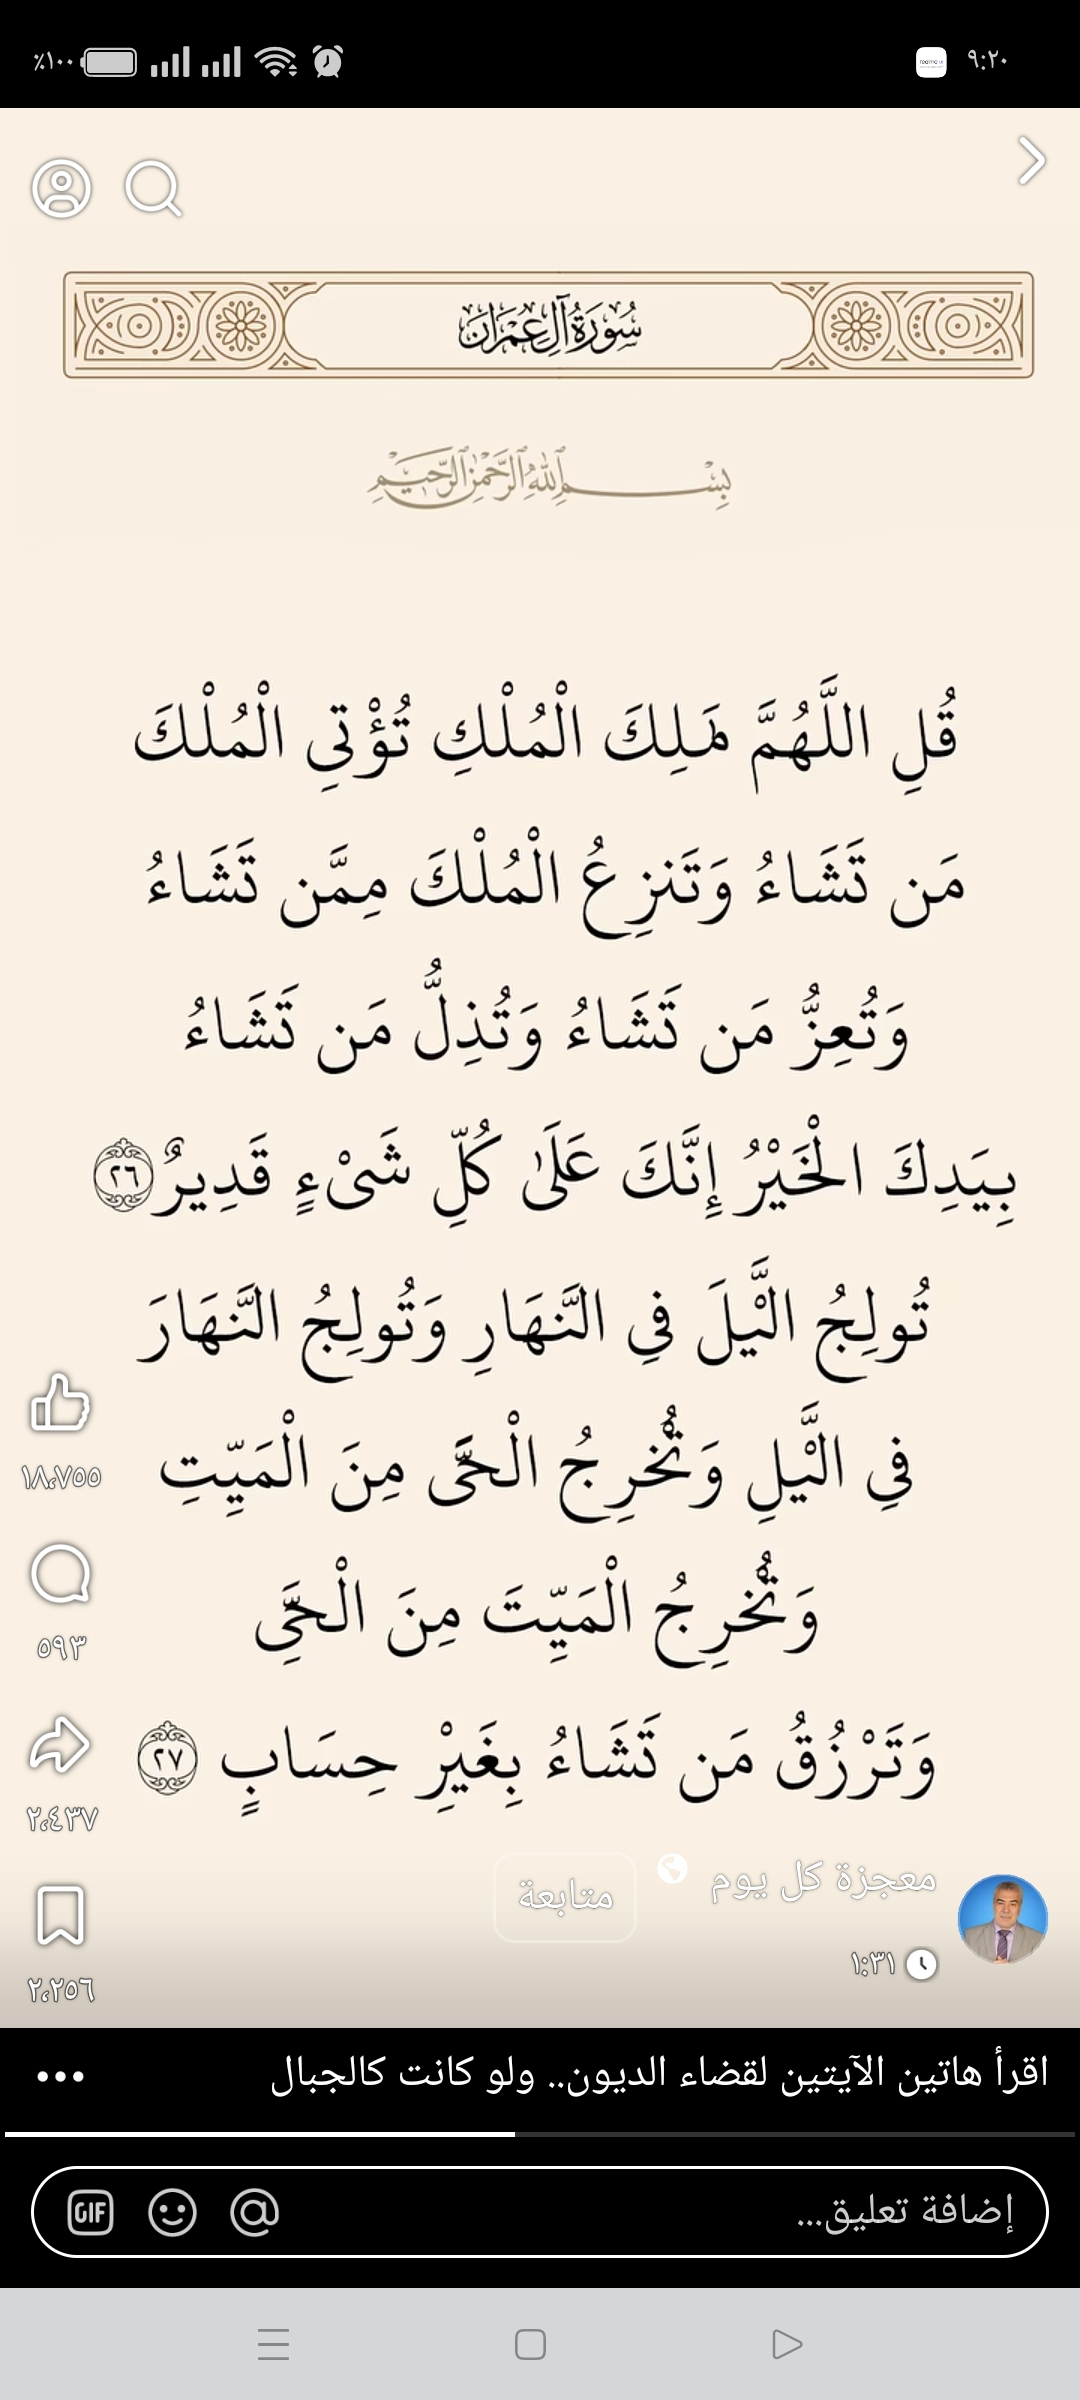 ٪١٠٠
٩:٢٠
سُورَةُ آلِ عِمۡرَان
بِسْمِ اللَّهِ الرَّحْمَٰنِ الرَّحِيمِ
قُلِ اللَّهُمَّ مَٰلِكَ الْمُلْكِ تُؤْتِى الْمُلْكَ
مَن تَشَاءُ وَتَنزِعُ الْمُلْكَ مِمَّن تَشَاءُ
وَتُعِزُّ مَن تَشَاءُ وَتُذِلُّ مَن تَشَاءُ
بِيَدِكَ الْخَيْرُ إِنَّكَ عَلَىٰ كُلِّ شَىْءٍ قَدِيرٌ ٢٦
تُولِجُ الَّيْلَ فِى النَّهَارِ وَتُولِجُ النَّهَارَ
فِى الَّيْلِ وَتُخْرِجُ الْحَىَّ مِنَ الْمَيِّتِ
وَتُخْرِجُ الْمَيِّتَ مِنَ الْحَىِّ
وَتَرْزُقُ مَن تَشَاءُ بِغَيْرِ حِسَابٍ ٢٧
١٨،٧٥٥
٥٩٣
٢،٤٣٧
٢،٢٥٦
معجزة كل يوم
متابعة
١:٣١
اقرأ هاتين الآيتين لقضاء الديون.. ولو كانت كالجبال
إضافة تعليق...
GIF